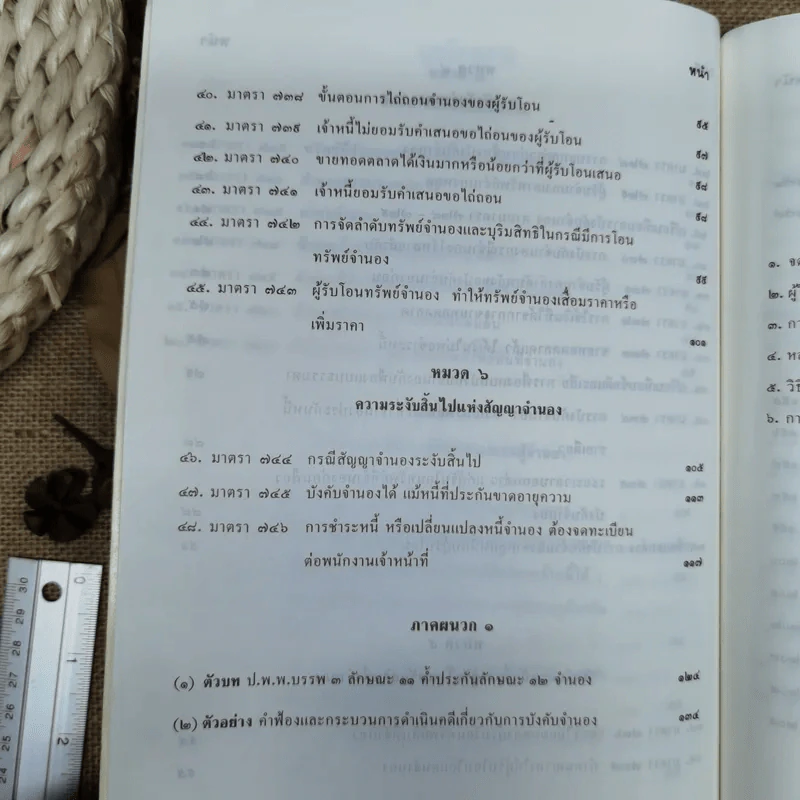 หน้า
๔๐. มาตรา ๗๓๘ ขั้นตอนการไถ่ถอนจำนองของผู้รับโอน ๙๕
๔๑. มาตรา ๗๓๙ เจ้าหนี้ไม่ยอมรับคำเสนอขอไถ่ถอนของผู้รับโอน ๙๗
๔๒. มาตรา ๗๔๐ ขายทอดตลาดได้เงินมากหรือน้อยกว่าที่ผู้รับโอนเสนอ ๙๘
๔๓. มาตรา ๗๔๑ เจ้าหนี้ยอมรับคำเสนอขอไถ่ถอน ๙๘
๔๔. มาตรา ๗๔๒ การจัดลำดับทรัพย์จำนองและบุริมสิทธิในกรณีมีการโอน
ทรัพย์จำนอง ๙๙
๔๕. มาตรา ๗๔๓ ผู้รับโอนทรัพย์จำนอง ทำให้ทรัพย์จำนองเสื่อมราคาหรือ
เพิ่มราคา ๑๐๑
หมวด ๖
ความระงับสิ้นไปแห่งสัญญาจำนอง
๔๖. มาตรา ๗๔๔ กรณีสัญญาจำนองระงับสิ้นไป ๑๐๕
๔๗. มาตรา ๗๔๕ บังคับจำนองได้ แม้หนี้ที่ประกันขาดอายุความ ๑๑๓
๔๘. มาตรา ๗๔๖ การชำระหนี้ หรือเปลี่ยนแปลงหนี้จำนอง ต้องจดทะเบียน
ต่อพนักงานเจ้าหน้าที่ ๑๑๗
ภาคผนวก ๑
(๑) ตัวบท ป.พ.พ.บรรพ ๓ ลักษณะ ๑๑ ค้ำประกันลักษณะ ๑๒ จำนอง ๑๒๔
(๒) ตัวอย่าง คำฟ้องและกระบวนการดำเนินคดีเกี่ยวกับการบังคับจำนอง ๑๓๔
๑.
๒.
๓.
๔.
๕.
๖.